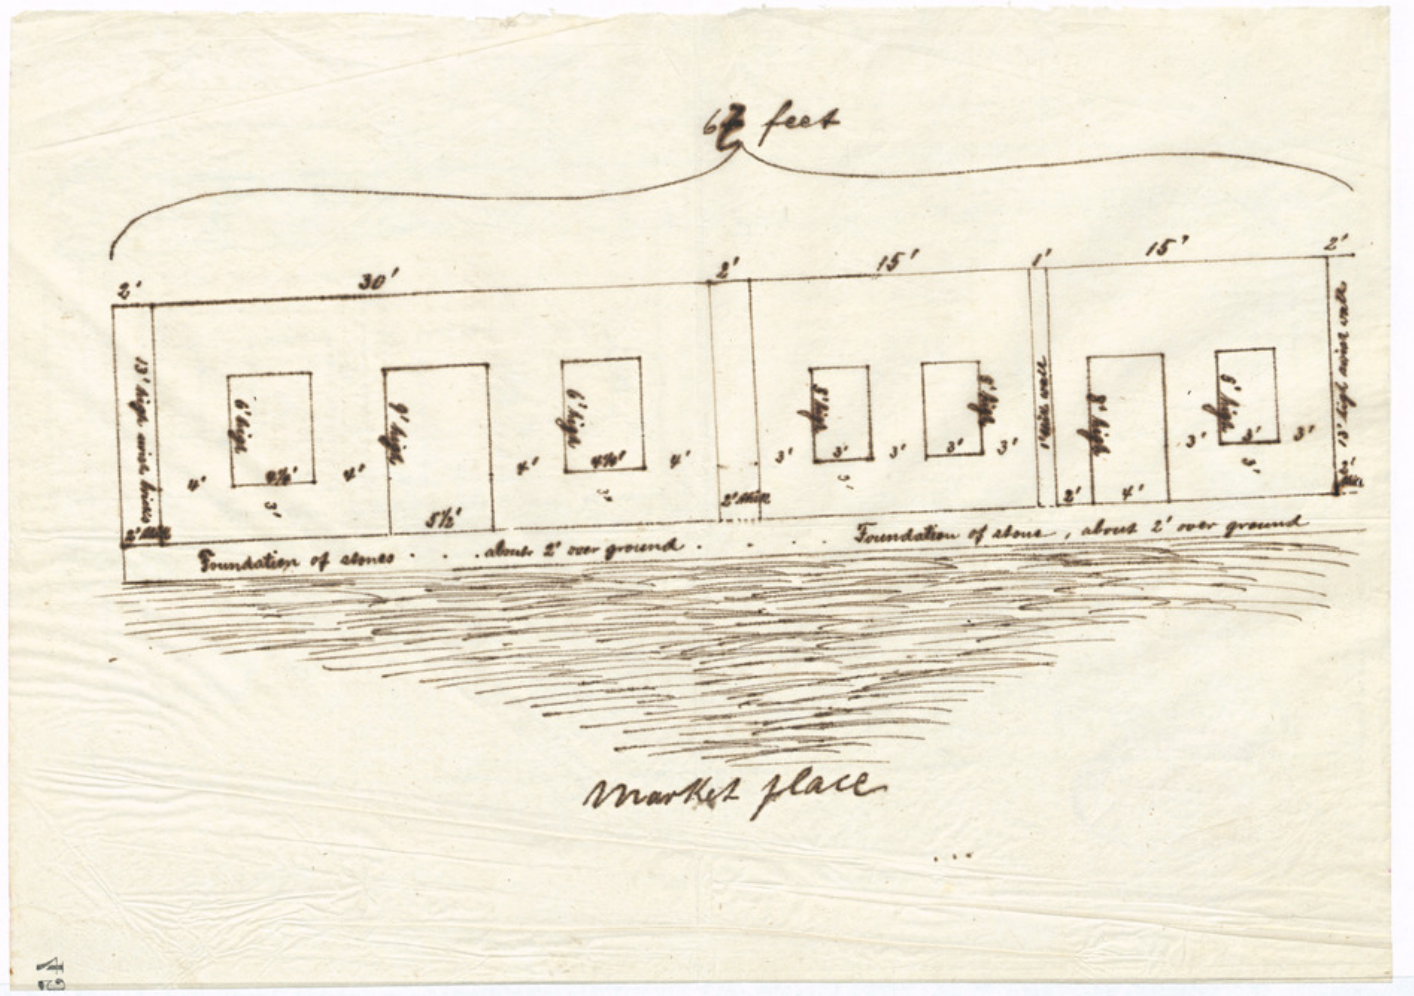 67 feet
2' 30' 2' 15' 1' 15' 2'
13' high
6' high
4½'
3'
4'
4'
9' high
5½'
4'
6' high
4½'
3'
4'
2' thick
2' thick
3'
5' high
3'
3'
3'
3'
5' high
3'
1' thick wall
2'
8' high
4'
3'
5' high
3'
3'
3'
13' high wall
2' thick
Foundation of stones . . . about 2' over ground . . . . Foundation of stone, about 2' over ground
Market place